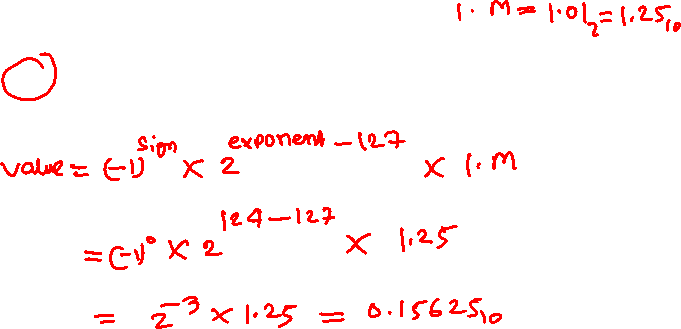 1. M = 1.01₂ = 1.25₁₀
value = (-1)^sign × 2^exponent - 127 × 1.M
= (-1)⁰ × 2^124-127 × 1.25
= 2⁻³ × 1.25 = 0.15625₁₀